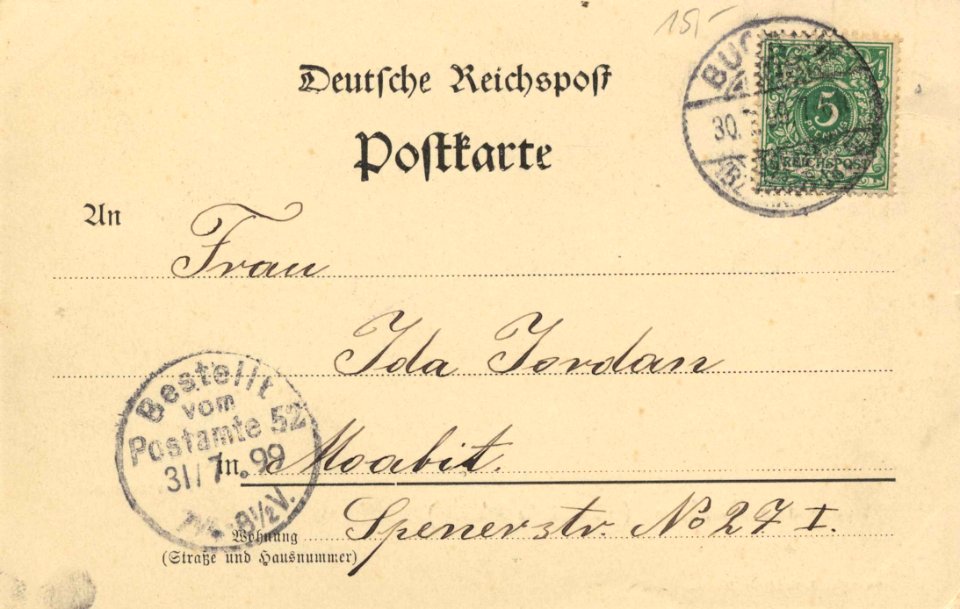 15,-
Deutsche Reichspost
Postkarte
BUCH
30.
5
REICHSPOST
An
Frau
Ida Jordan
Bestellt
vom
Postamte 52
31/7.99
-8½V.
in Moabit.
Spenerstr. No 27 I.
Wohnung
(Straße und Hausnummer)